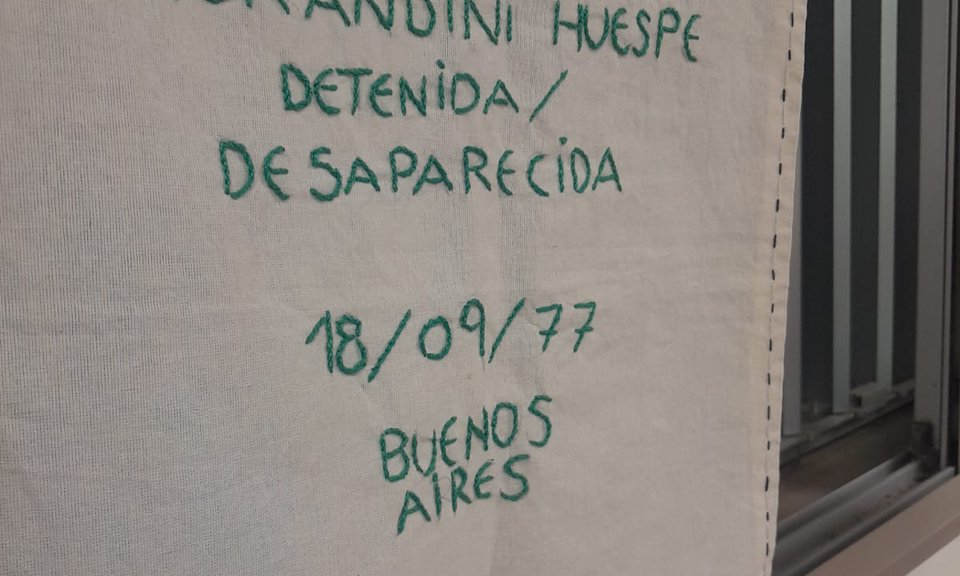 HUESPE
DETENIDA/
DESAPARECIDA
18/09/77
BUENOS
AIRES